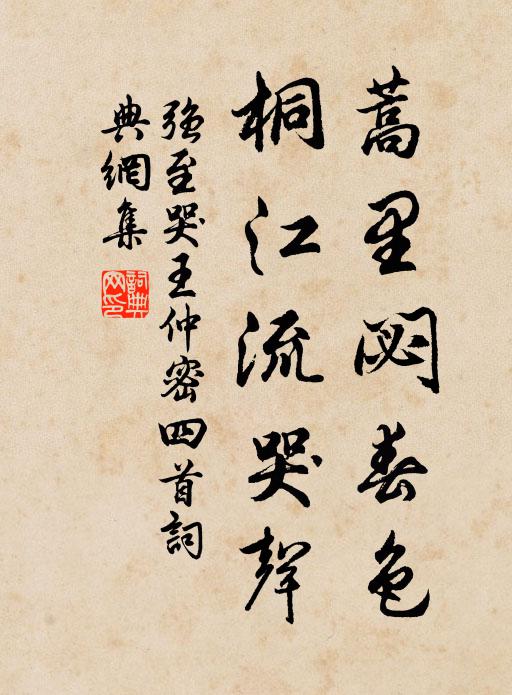 蒿里閟春色
桐江流哭聲
強至哭王仲密四首詞
典網集
詞典
网印